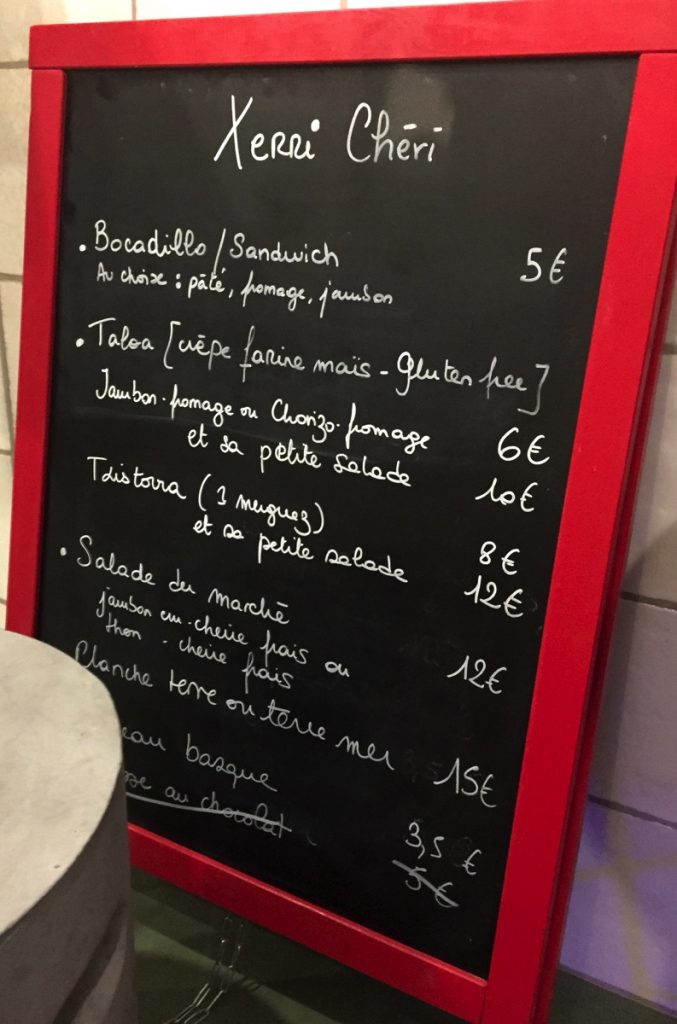 Xerri Chéri
• Bocadillo / Sandwich 5€
Au choix : pâté, fromage, jambon
• Taloa [crêpe farine maïs - Gluten free]
Jambon-fromage ou Chorizo-fromage 6€
et sa petite salade 10€
Txistorra (1 merguez) 8€
et sa petite salade 12€
• Salade du marché
jambon cru - chèvre frais ou 12€
thon - chèvre frais
Planche terre ou terre mer 15€
eau basque 3,5 €
sse au chocolat 5 €